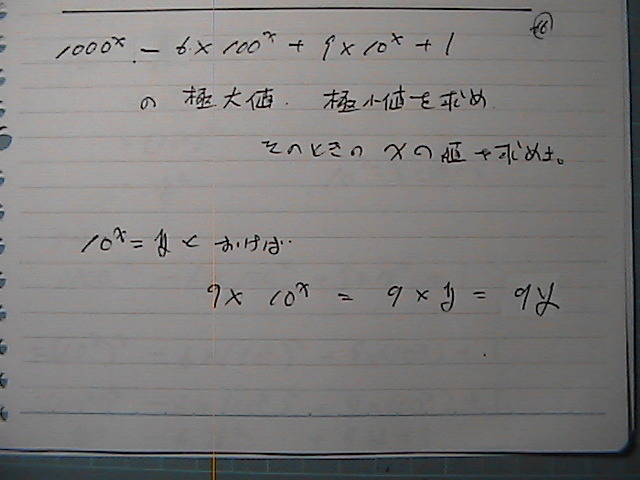 1000^x - 6 × 100^x + 9 × 10^x + 1
の 極大値. 極小値を求め
そのときの xの値を求めよ。
10^x = y とおけば
9 × 10^x = 9 × y = 9y